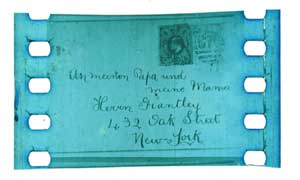 An meinen Papa und
meine Mama
Herrn Grantley
432 Oak Street
New-York